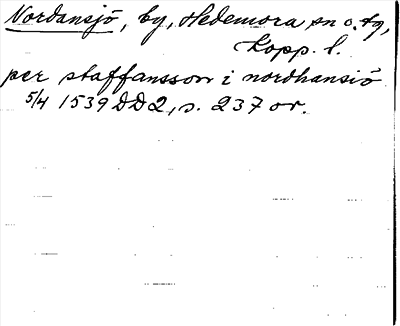 Nordansjö, by, Hedemora sn o. tg,
Kopp. l.
per staffansson i nordhansiö
5/4 1539 DD2, s. 237 or.